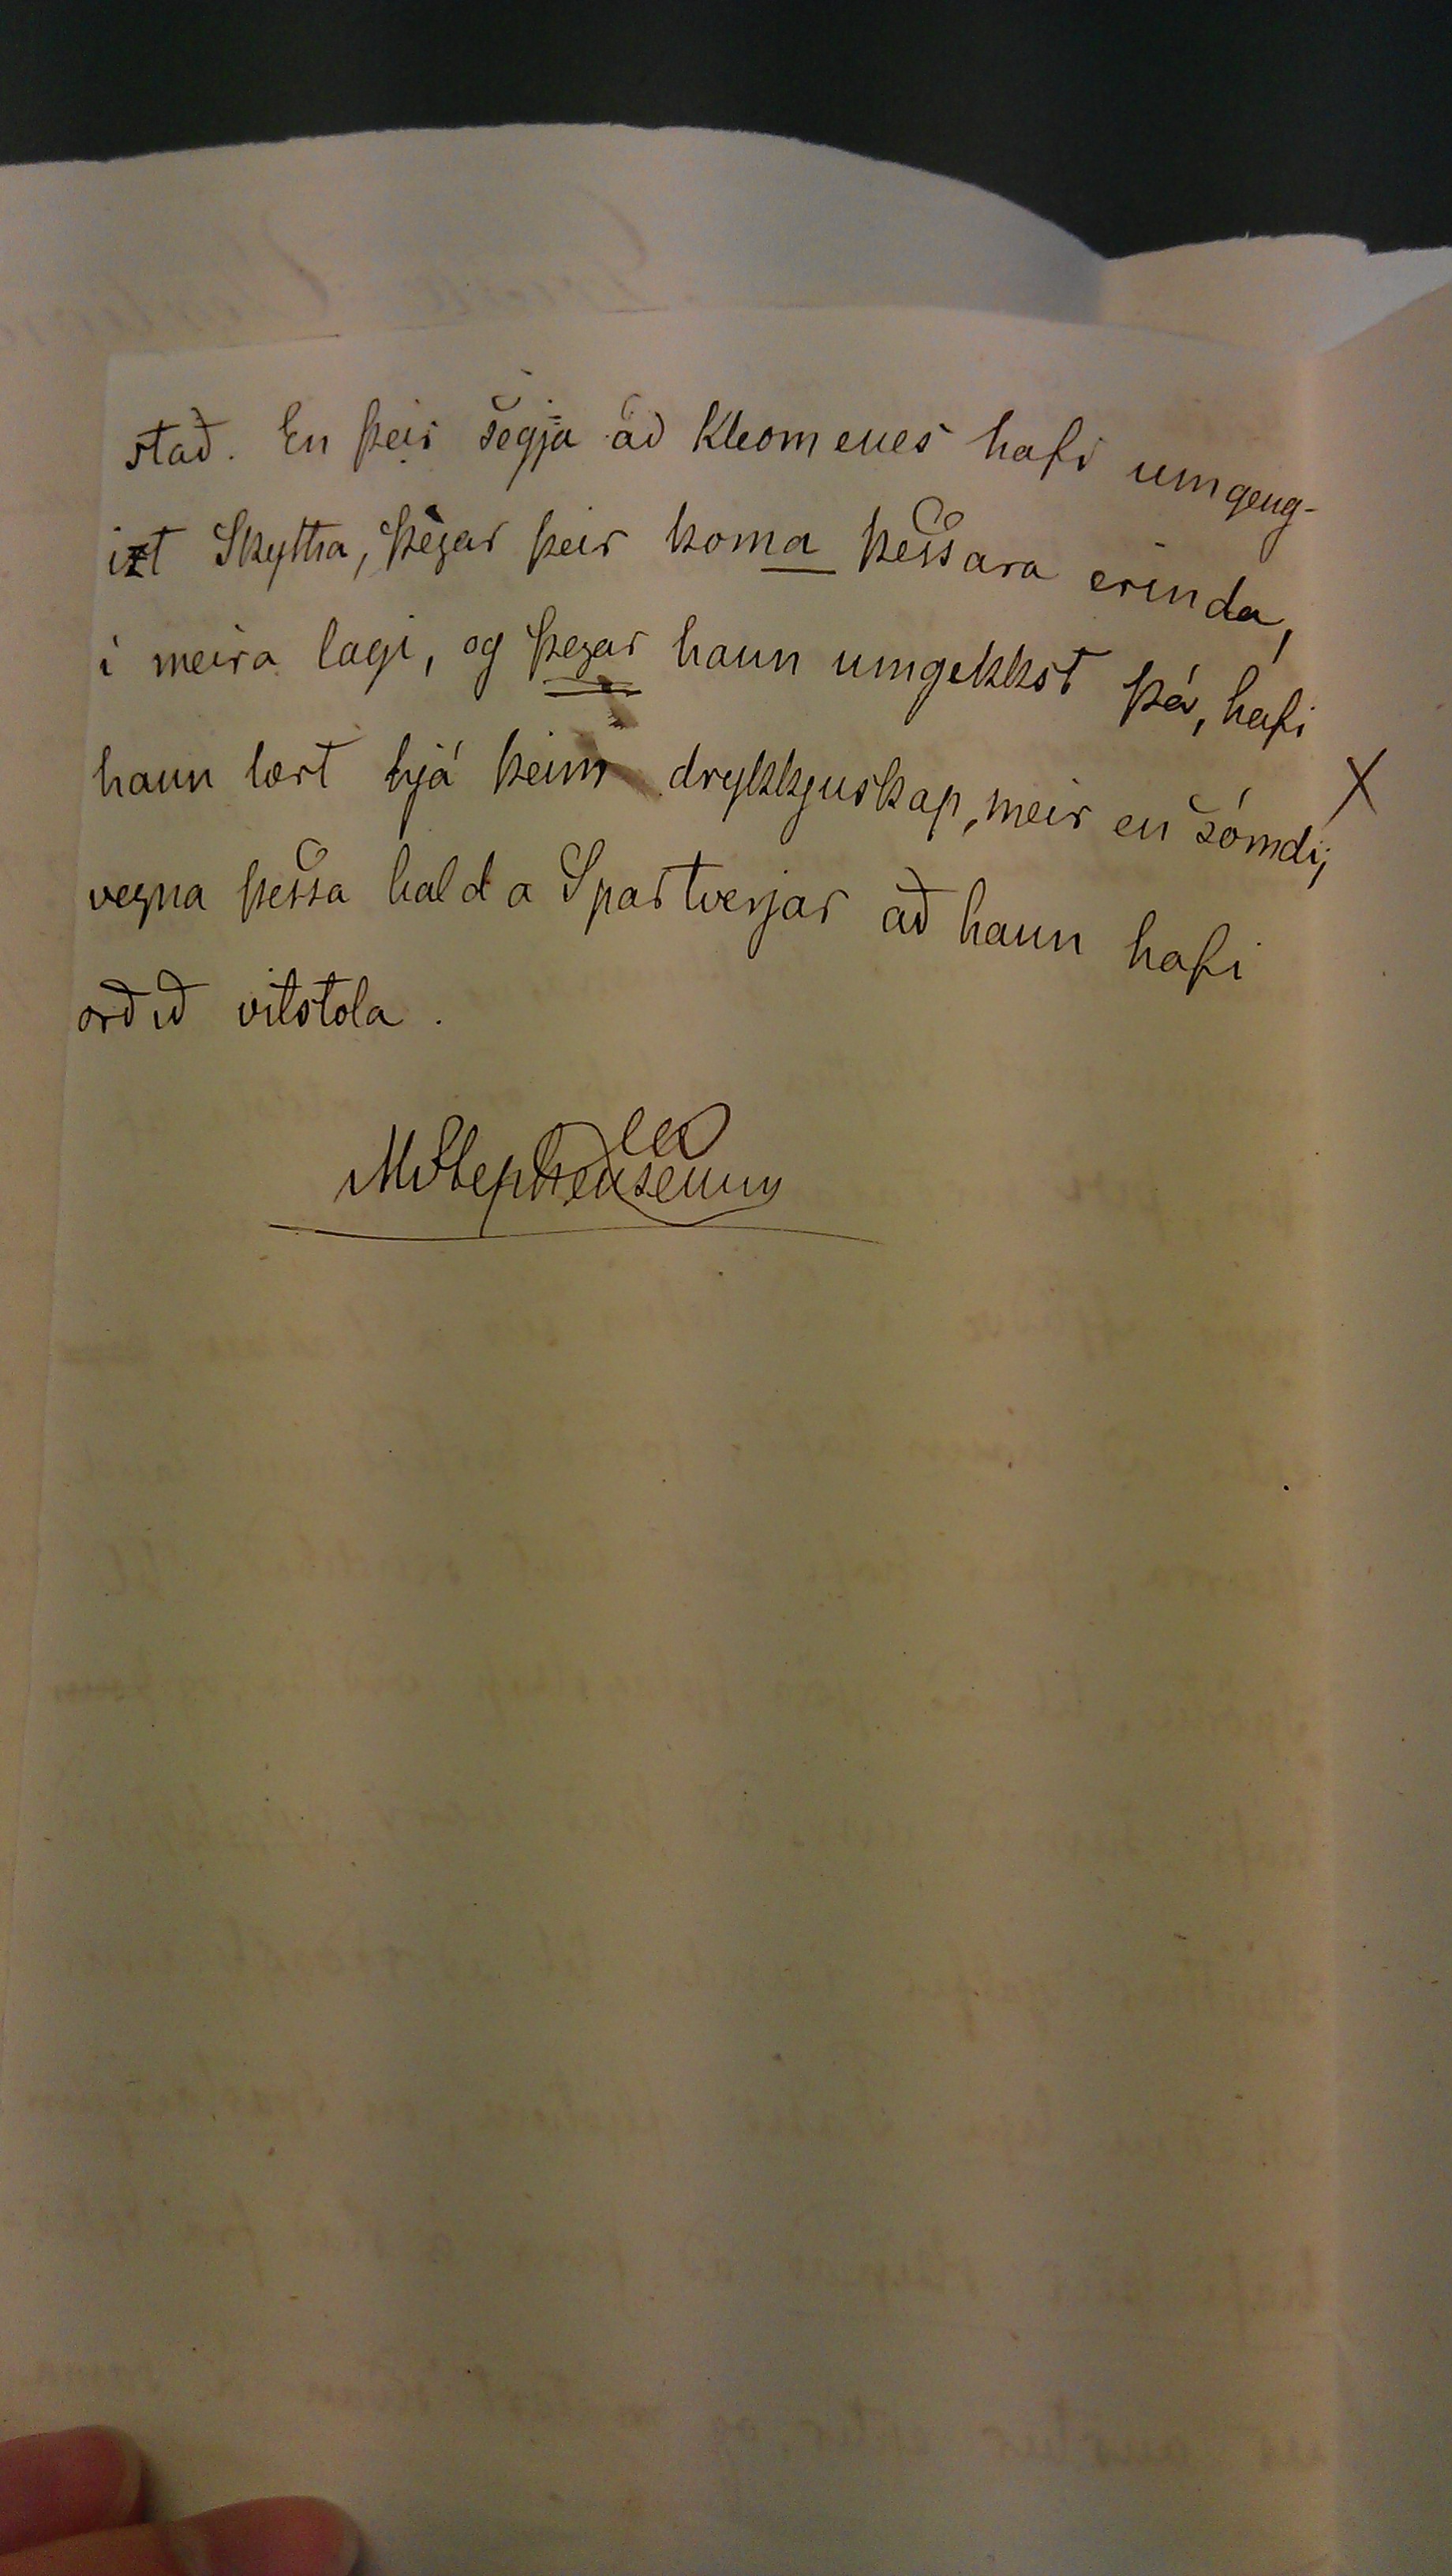 stað. En þeir segja að Kleomenes hafi umgeng-
izt Skytha, þegar þeir koma þessara erinda,
í meira lagi, og þegar hann umgekkst þá, hafi
hann lært hjá þeim drykkjuskap, meir en sómdi;
X
vegna þessa halda Spartverjar að hann hafi
orðið vitstola.
MStephensen